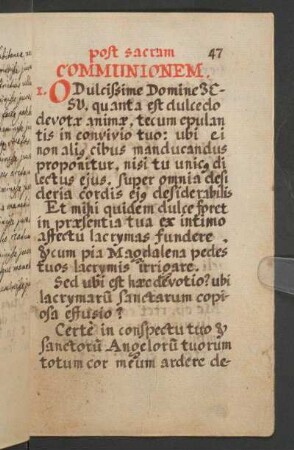 post sacram 47
COMMUNIONEM.
1. O Dulcissime Domine JE-
SU, quanta est dulcedo
devotæ animæ, tecum epulan
tis in convivio tuo: ubi ei
non aliꝯ cibus manducandus
proponitur, nisi tu unicꝯ di
lectus ejus, super omnia desi
deria cordis ejꝯ desiderabilis
Et mihi quidem dulce foret
in præsentia tua ex intimo
affectu lacrymas fundere,
& cum pia Magdalena pedes
tuos lacrymis irrigare.
Sed ubi est hæc devotio? ubi
lacrymarũ sanctarum copi
osa effusio?
Certè in conspectu tuo &
sanctorũ Angelorũ tuorum
totum cor meum ardere de-